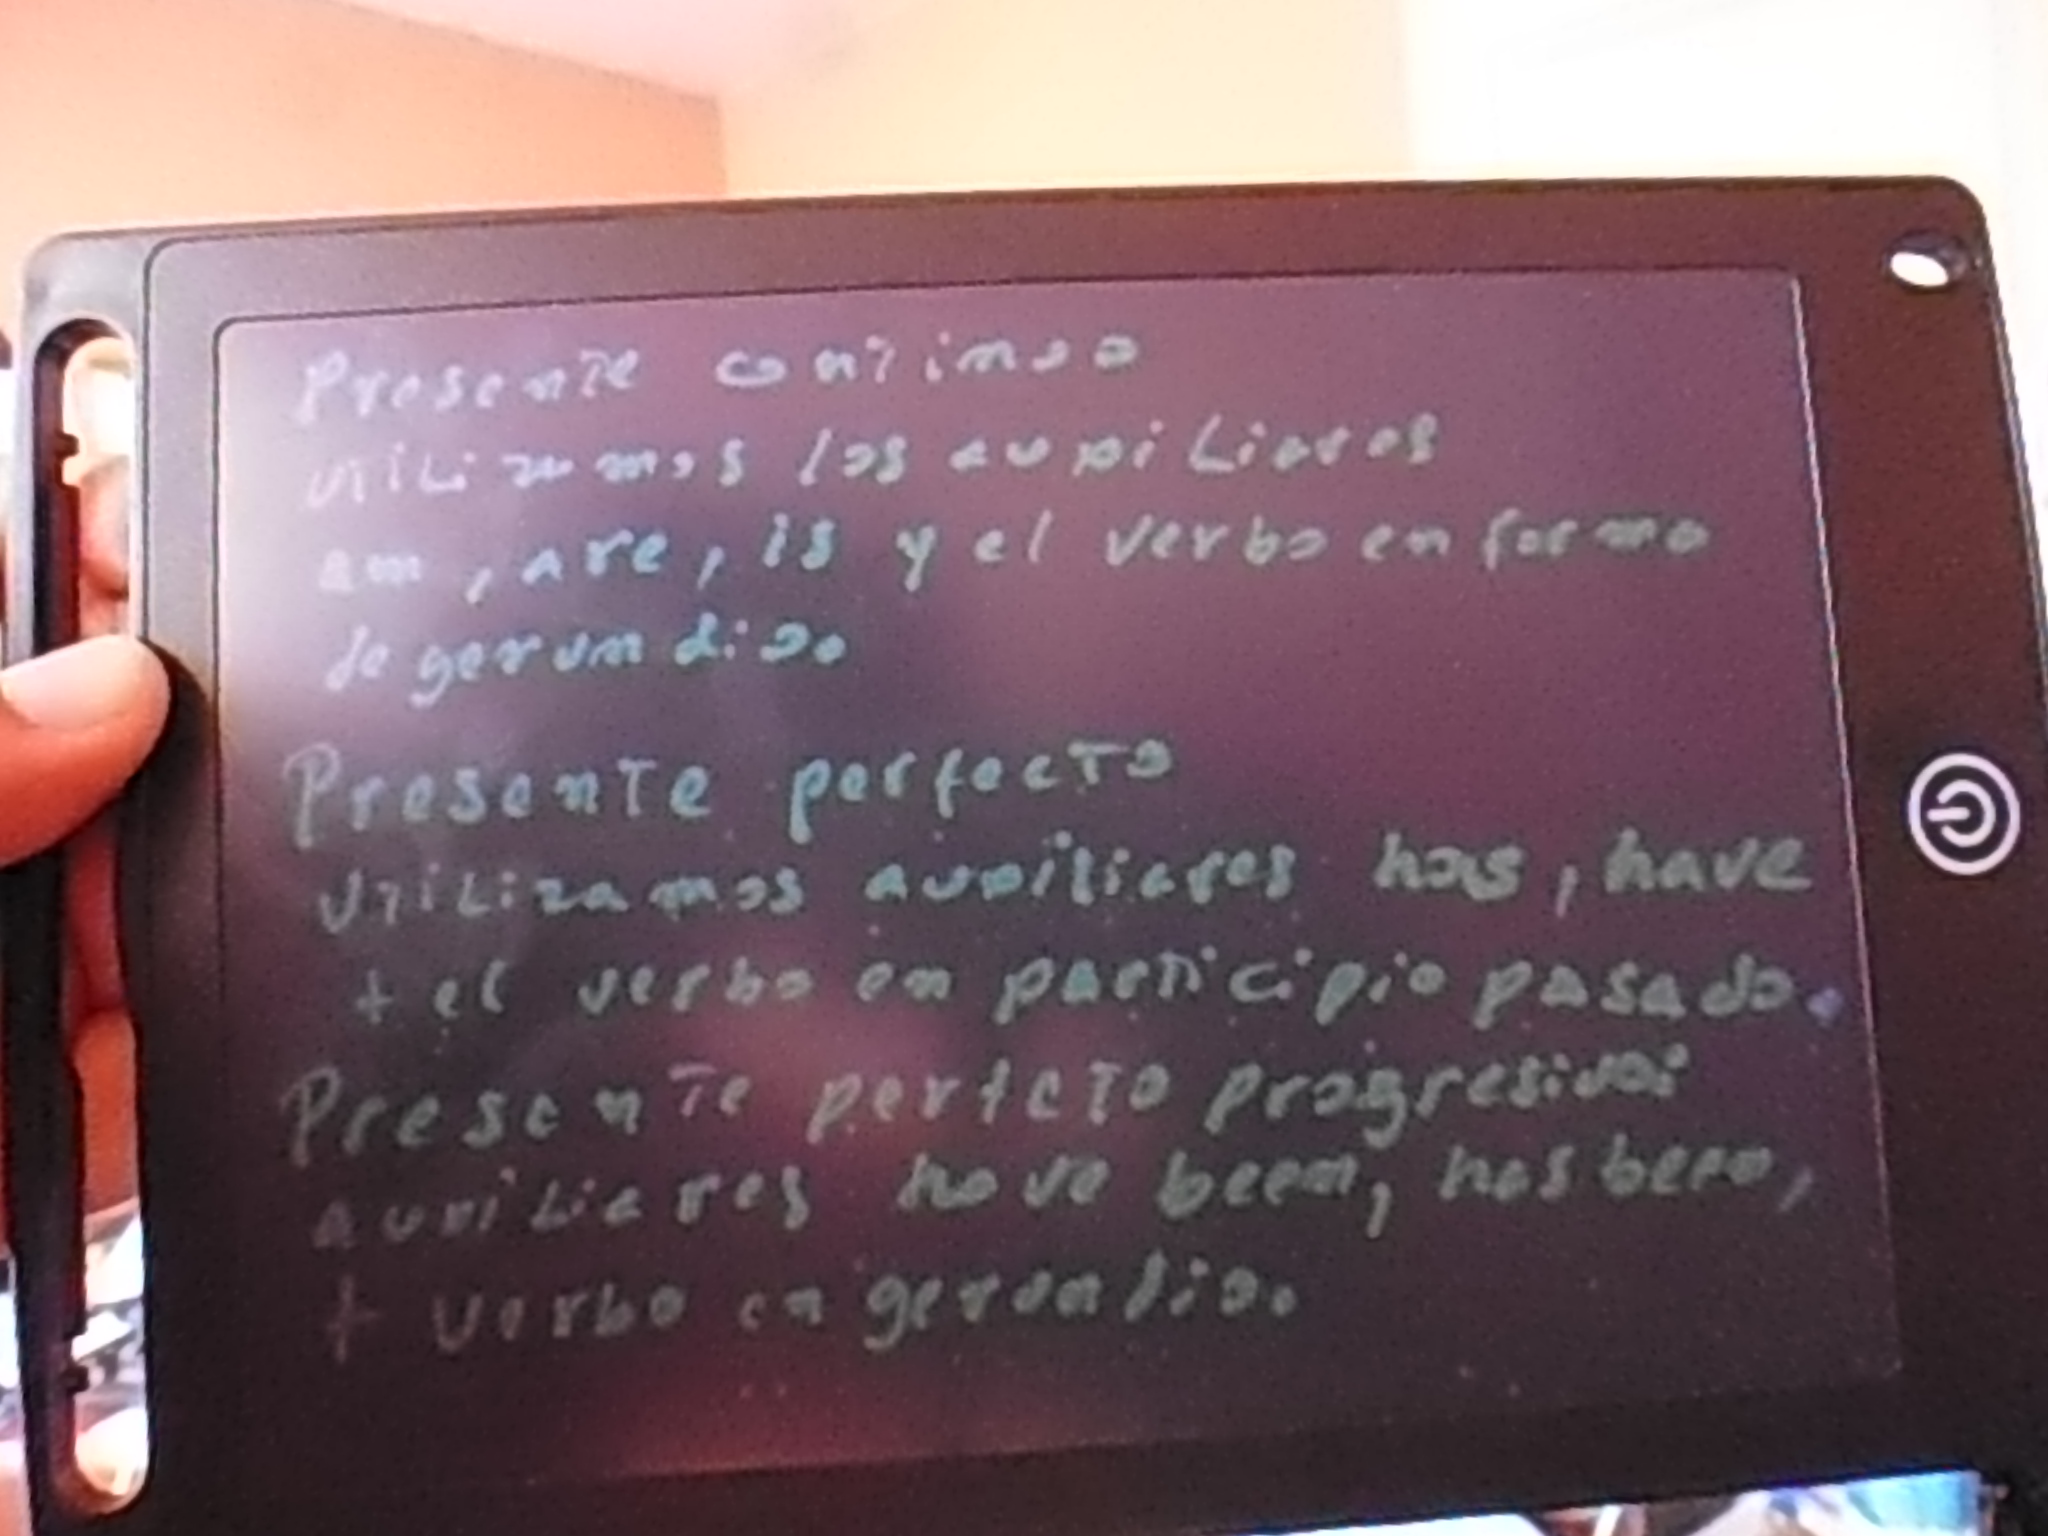 Presente continuo
utilizamos los auxiliares
am, are, is y el verbo en forma
de gerundio.
Presente perfecto
utilizamos auxiliares has, have
+ el verbo en participio pasado.
Presente perfcto progresivo:
auxiliares have been, has been,
+ verbo en gerundio.